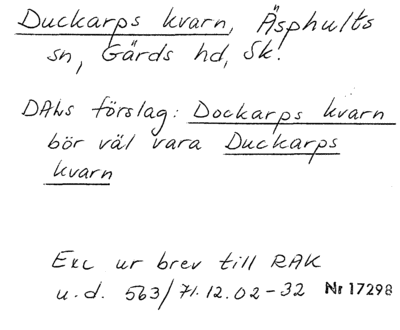 Duckarps kvarn, Äsphults
sn, Gärds hd, Sk.
DALs förslag: Dockarps kvarn
bör väl vara Duckarps
kvarn
Exc ur brev till RAK
u.d. 563/71.12.02-32 Nr 17298